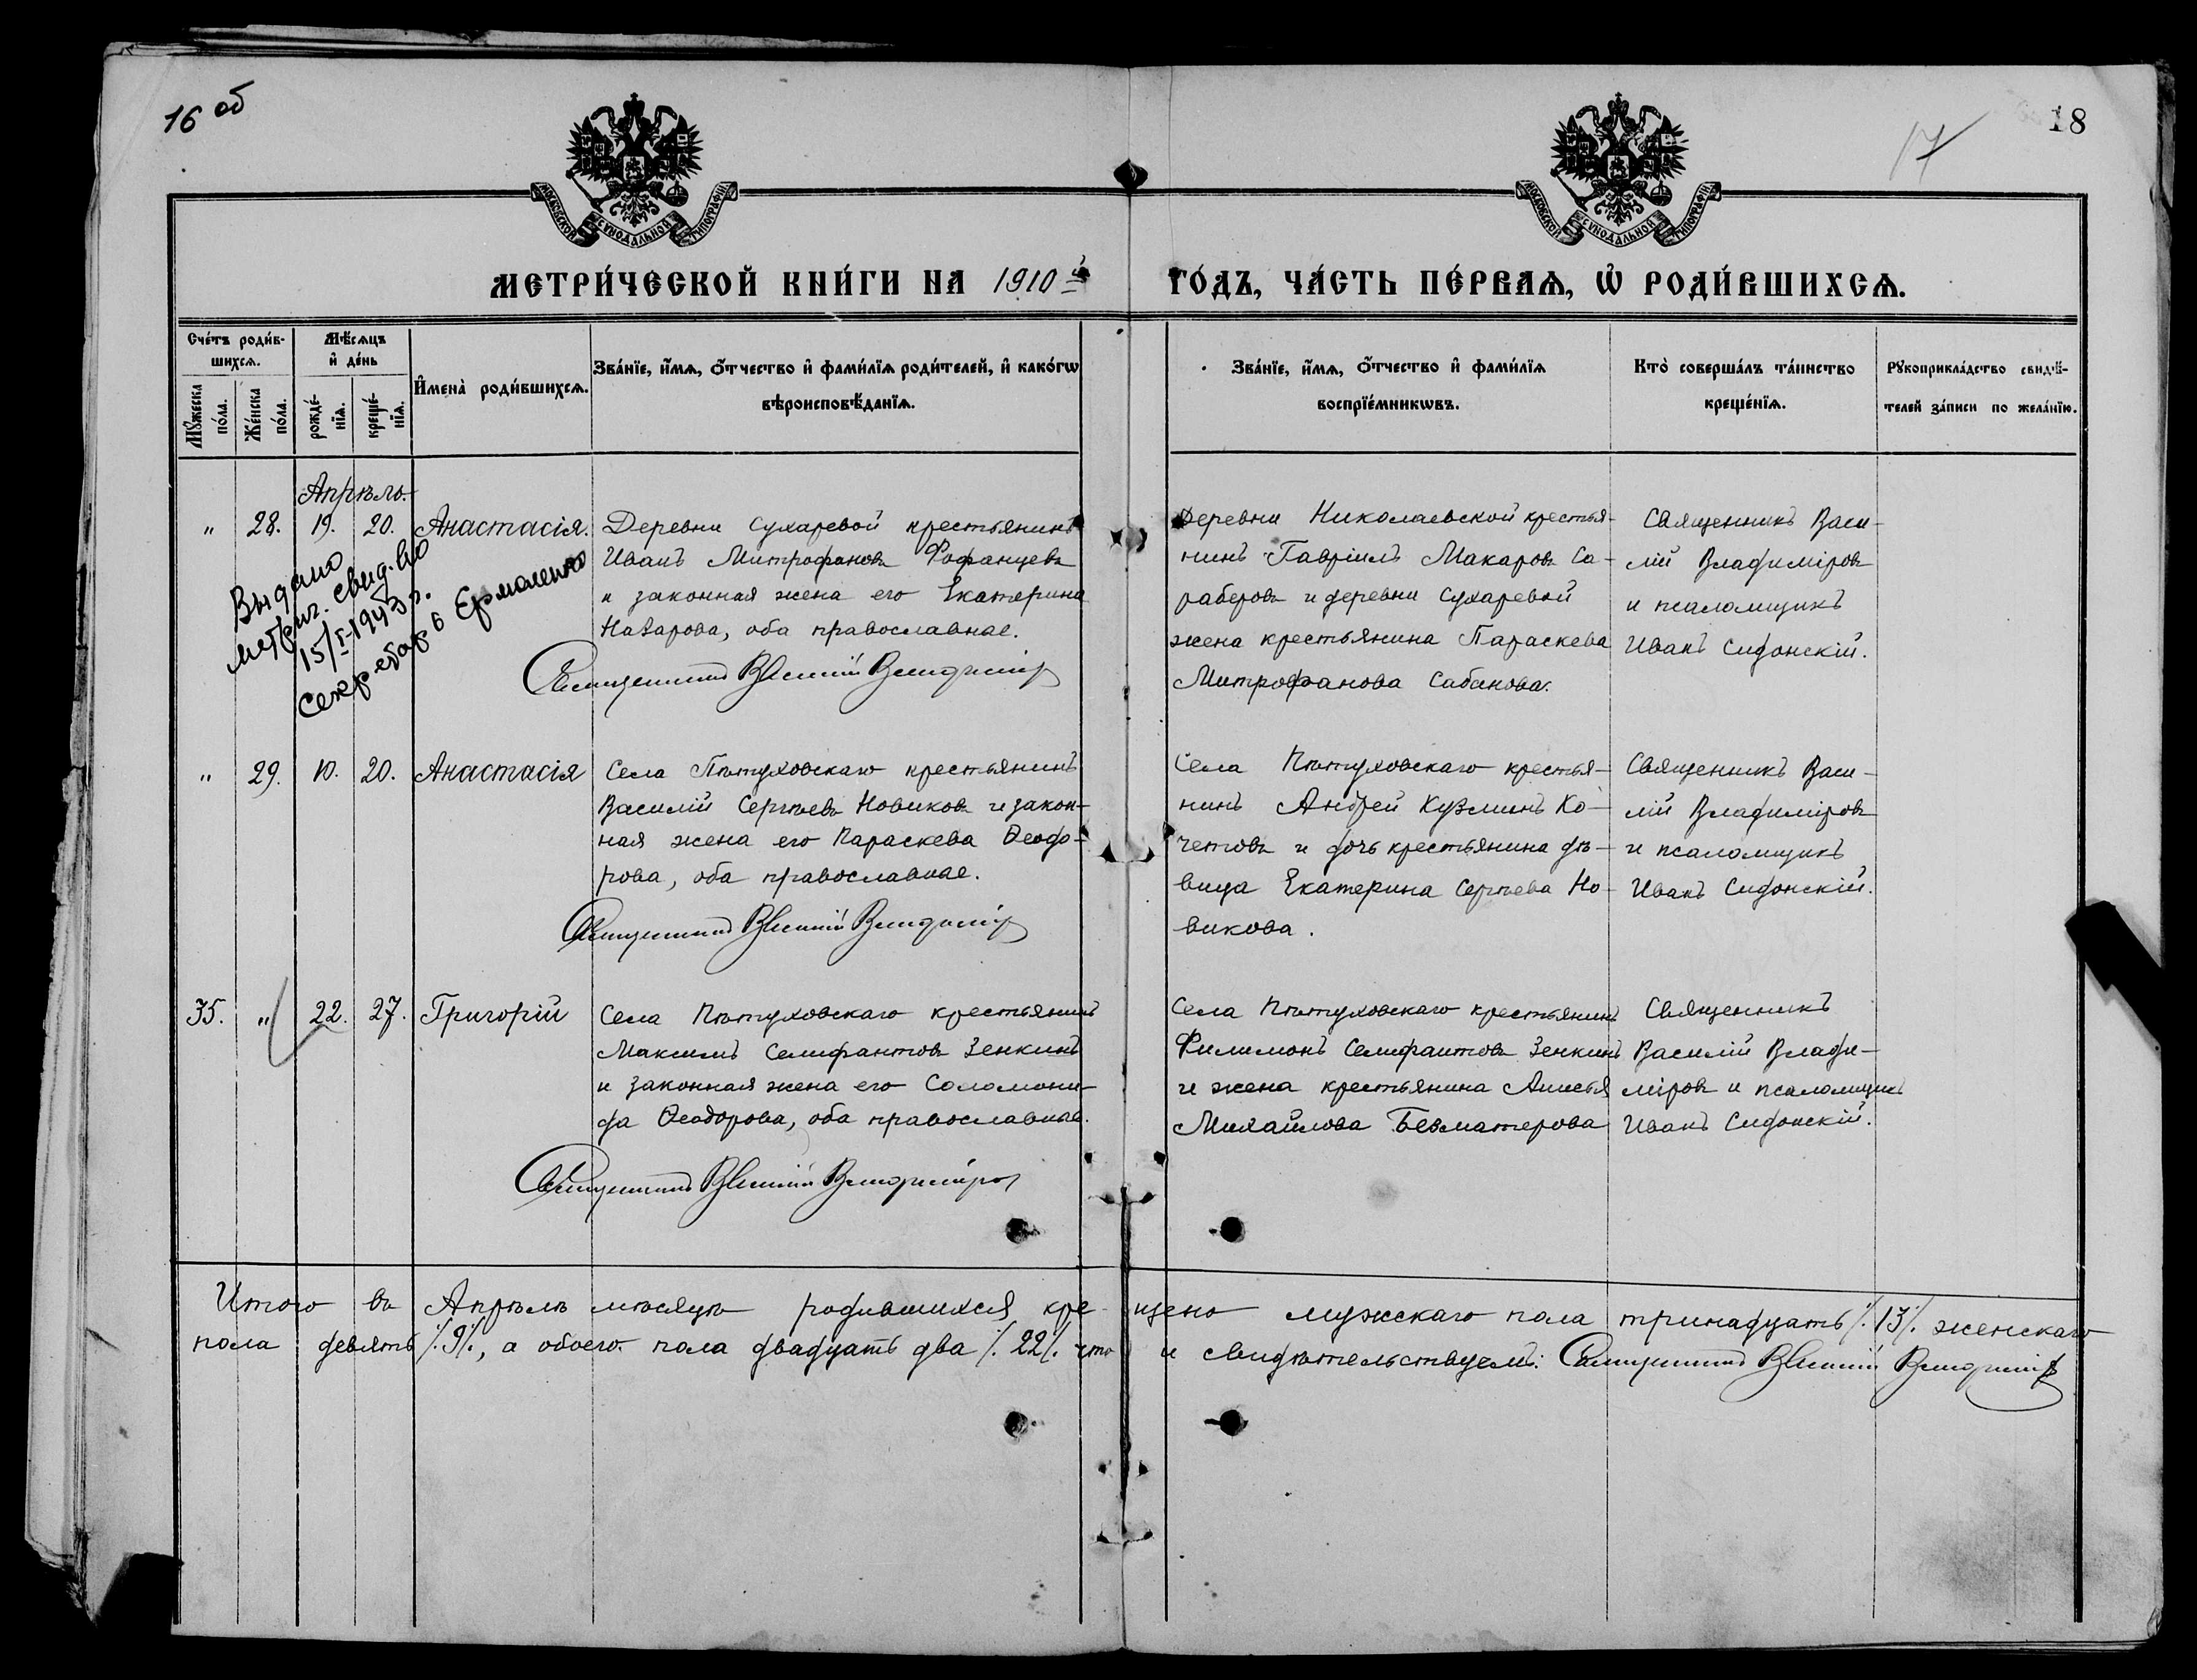 16 об
17
18
МОСКОВСКОЙ СѴНОДАЛЬНОЙ ТИПОГРАФІИ
МОСКОВСКОЙ СѴНОДАЛЬНОЙ ТИПОГРАФІИ
МЕТРИ́ЧЕСКОЙ КНИ́ГИ НА 1910й ГО́ДЪ, ЧА́СТЬ ПЕ́РВАѦ, Ѡ҆ РОДИ́ВШИХСѦ.
Сче́тъ роди́в-
шихсѧ.
Мꙋ́жеска
по́ла.
Же́нска
по́ла.
Мѣ́сѧцъ
и҆ де́нь
рожде́-
нїѧ.
креще́-
нїѧ.
И҆мена̀ роди́вшихсѧ.
Зва́нїе, и҆́мѧ, ѻ҆́тчество и҆ фами́лїѧ роди́телей, и҆ како́гѡ
вѣроисповѣ́данїѧ.
Зва́нїе, и҆́мѧ, ѻ҆́тчество и҆ фами́лїѧ
воспрїе́мникѡвъ.
Кто̀ соверша́лъ та́инство
креще́нїѧ.
Рꙋкоприкла́дство свидѣ́-
телей за́писи по жела́нїю.
Апрѣль
" 28. 19. 20. Анастасія.
Деревни Сухаревой крестьянинъ
Иванъ Митрофановъ Фофанцевъ
и законная жена его Екатерина
Назарова, оба православные.
Священникъ Василій Владиміровъ
Выдано
метрич. свид.во
15/I-1943 г.
Секр-етарь Ермоленко
Деревни Николаевской крестья-
нинъ Гавріилъ Макаровъ Са-
раберовъ и деревни Сухаревой
жена крестьянина Параскева
Митрофанова Сабанова.
Священникъ Васи-
лій Владиміровъ
и псаломщикъ
Иванъ Сидонскій.
" 29. 10. 20. Анастасія
Села Пѣтуховскаго крестьянинъ
Василій Сергѣевъ Новиковъ и закон-
ная жена его Параскева Ѳеодо-
рова, оба православные.
Священникъ Василій Владиміровъ
Села Пѣтуховскаго крестья-
нинъ Андрей Кузминъ Ко-
четовъ и дочь крестьянина дѣ-
вица Екатерина Сергѣева Но-
викова.
Священникъ Васи-
лій Владиміровъ
и псаломщикъ
Иванъ Сидонскій.
35. " 22. 27. Григорій
Села Пѣтуховскаго крестьянинъ
Максимъ Селифантовъ Зенкинъ
и законная жена его Соломони-
да Ѳеодорова, оба православные.
Священникъ Василій Владиміровъ
Села Пѣтуховскаго крестьянинъ
Филимонъ Селифантовъ Зенкинъ
и жена крестьянина Анисья
Михайлова Безматерова
Священникъ
Василій Влади-
міровъ и псаломщикъ
Иванъ Сидонскій.
Итого въ Апрѣлѣ мѣсяцѣ родившихся кре-щено мужскаго пола тринадцать /.13/. женскаго
пола девять /.9/., а обоего пола двадцать два /. 22/. что и свидѣтельствуемъ: Священникъ Василій Владиміровъ